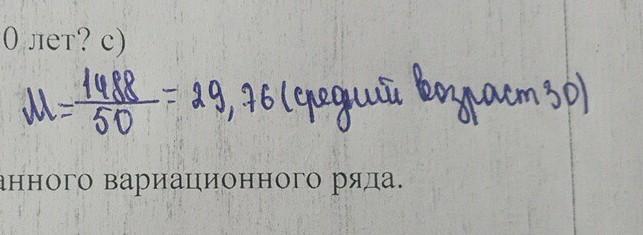 0 лет? с)
M = 1488 / 50 = 29,76 (средний возраст 30)
анного вариационного ряда.